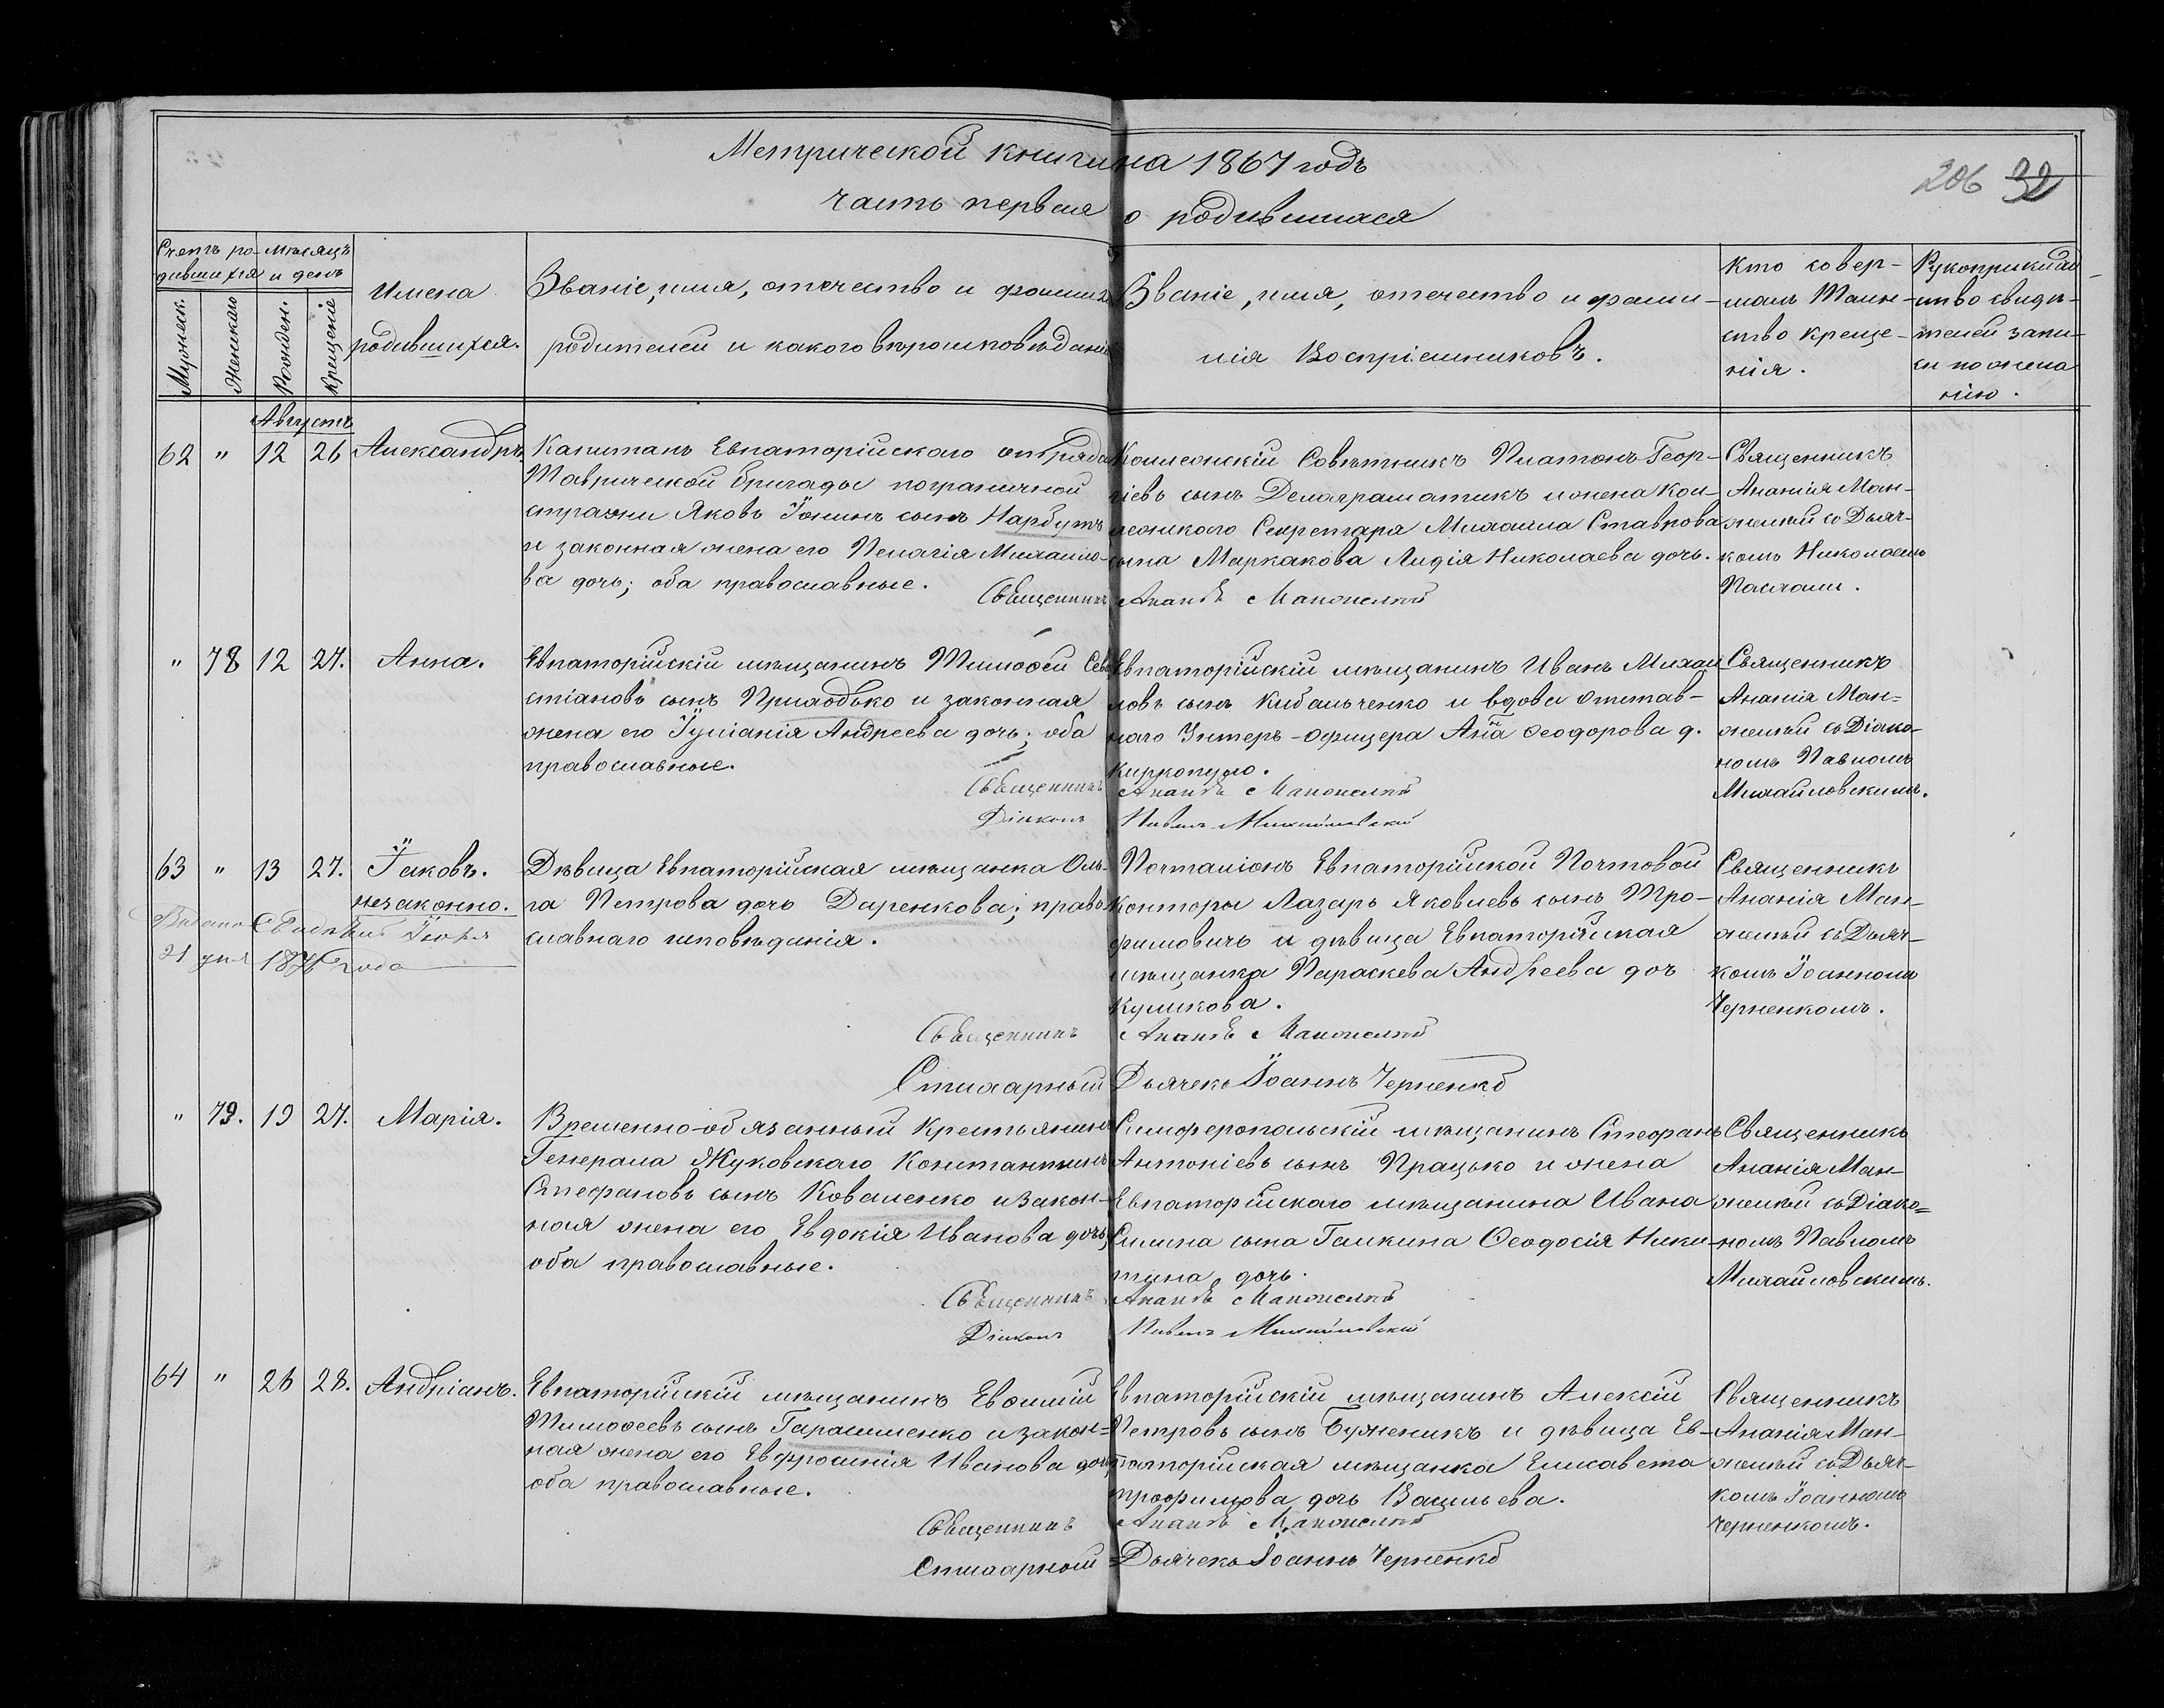 Метрической книги на 1867 годъ
часть первая о родившихся
206 32
Счетъ ро-
дившихся
Мужеск.
Женскаго
мѣсяцъ
и день
Рожден.
Крещенiе
Имена
родившихся.
Званiе, имя, отчество и фамилiя
родителей и какого вѣроисповѣданiя
Званiе, имя, отечество и фами-
лiя Воспрiемниковъ.
Кто совер-
шалъ Таин-
ство Креще-
нiя.
Рукоприклад
ство свидѣ-
телей запи-
си по жела
нiю.
Августъ
62 " 12 26 Александръ
Капитанъ Евпаторiйскаго отряда
Таврической бригады пограничной
стражи Яковъ Iонинъ сынъ Нарбутъ
и законная жена его Пелагiя Михаило-
ва дочь; оба православные.
Коллежскiй Совѣтникъ Платонъ Геор-
гiевъ сынъ Демаграматикъ и жена Кол-
лежскаго Секретаря Михаила Ставрова
сына Маркакова Лидiя Николаева дочь.
Священникъ
Ананiя Ман-
желѣй съ Дьяч-
комъ Николаемъ
Священникъ
" 78 12 27. Анна.
Евпаторiйскiй мѣщанинъ Тимоѳей Сева
стiановъ сынъ и законная
жена его Iулiанiя Андреева дочь; оба
православные.
Евпаторiйскiй мѣщанинъ Иванъ Михаи
ловъ сынъ Кибальченко и вдова отстав-
наго Унтеръ-офицера Анна Ѳеодорова д.
Киркопуло.
Священникъ
Ананiя Ман-
желѣй съ Дiако-
номъ Павломъ
Михайловскимъ.
Священникъ
Дiаконъ Павелъ Михайловскiй
63 " 13 27. Iаковъ.
незаконно.
21 дня 187 года
Дѣвица Евпаторiйская мѣщанка Оль-
га Петрова дочь Даренкова; право
славнаго исповѣданiя.
Почталiонъ Евпаторiйской Почтовой
Конторы Лазарь Яковлевъ сынъ Тро-
фимовичъ и дѣвица Евпаторiйская
мѣщанка Параскева Андреева доч
Куликова.
Священникъ
Ананiя Ман-
желѣй съ Дьяч-
комъ Iоанномъ
Черненкомъ.
Священникъ
Стихарный Дьячекъ Iоаннъ Черненко
" 79. 19 27. Марiя.
Временно-обязанный крестьянинъ
Генерала Жуковскаго Константинъ
Стефановъ сынъ Коваленко и закон-
ная жена его Евдокiя Иванова дочь,
оба православные.
Симферопольскiй мѣщанинъ Стефанъ
Антонiевъ сынъ Працько и жена
Евпаторiйскаго мѣщанина Ивана
Силина сына Галкина Ѳеодосiя Ники-
тина дочь.
Священникъ
Ананiя Ман-
желѣй съ Дiако-
номъ Павломъ
Михайловскимъ.
Священникъ
Дiаконъ Павелъ Михайловскiй
64 " 26 28. Андрiанъ.
Евпаторiйскiй мѣщанинъ Евѳимiй
Тимоѳеевъ сынъ Гарашенко и закон-
ная жена его Евфросинiя Иванова дочь,
оба православные.
Евпаторiйскiй мѣщанинъ Алексiй
Петровъ сынъ Буженикъ и дѣвица Ев-
паторiйская мѣщанка Елисавета
Трофимова дочь Васильева.
Священникъ
Ананiя Ман-
желѣй съ Дьяч-
комъ Iоанномъ
Черненкомъ.
Священникъ
Стихарный Дьячекъ Iоаннъ Черненко